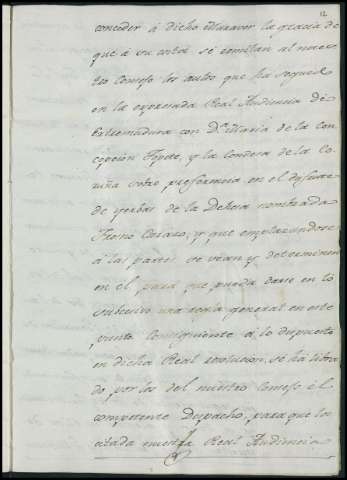 12
conceder á dicho Maraver la gracia de
que á su costa se remitan al nues-
tro Consejo los autos que ha seguido
en la expresada Real Audiencia de
Extremadura con Dª Maria de la Con-
cepcion Topete, y la Condesa de la Co-
ruña sobre preferencia en el disfrute
de yerbas de la Dehesa nombrada
Fresno Corazo, y que emplazandose
á las partes se vean y determinen
en el, para que pueda darse en lo
subcesivo una regla general en este
punto. Consiguiente á lo dispuesto
en dicha Real resolucion, se há libra-
do por los del nuestro Consejo el
competente Despacho, para que la
citada nuestra Real Audiencia